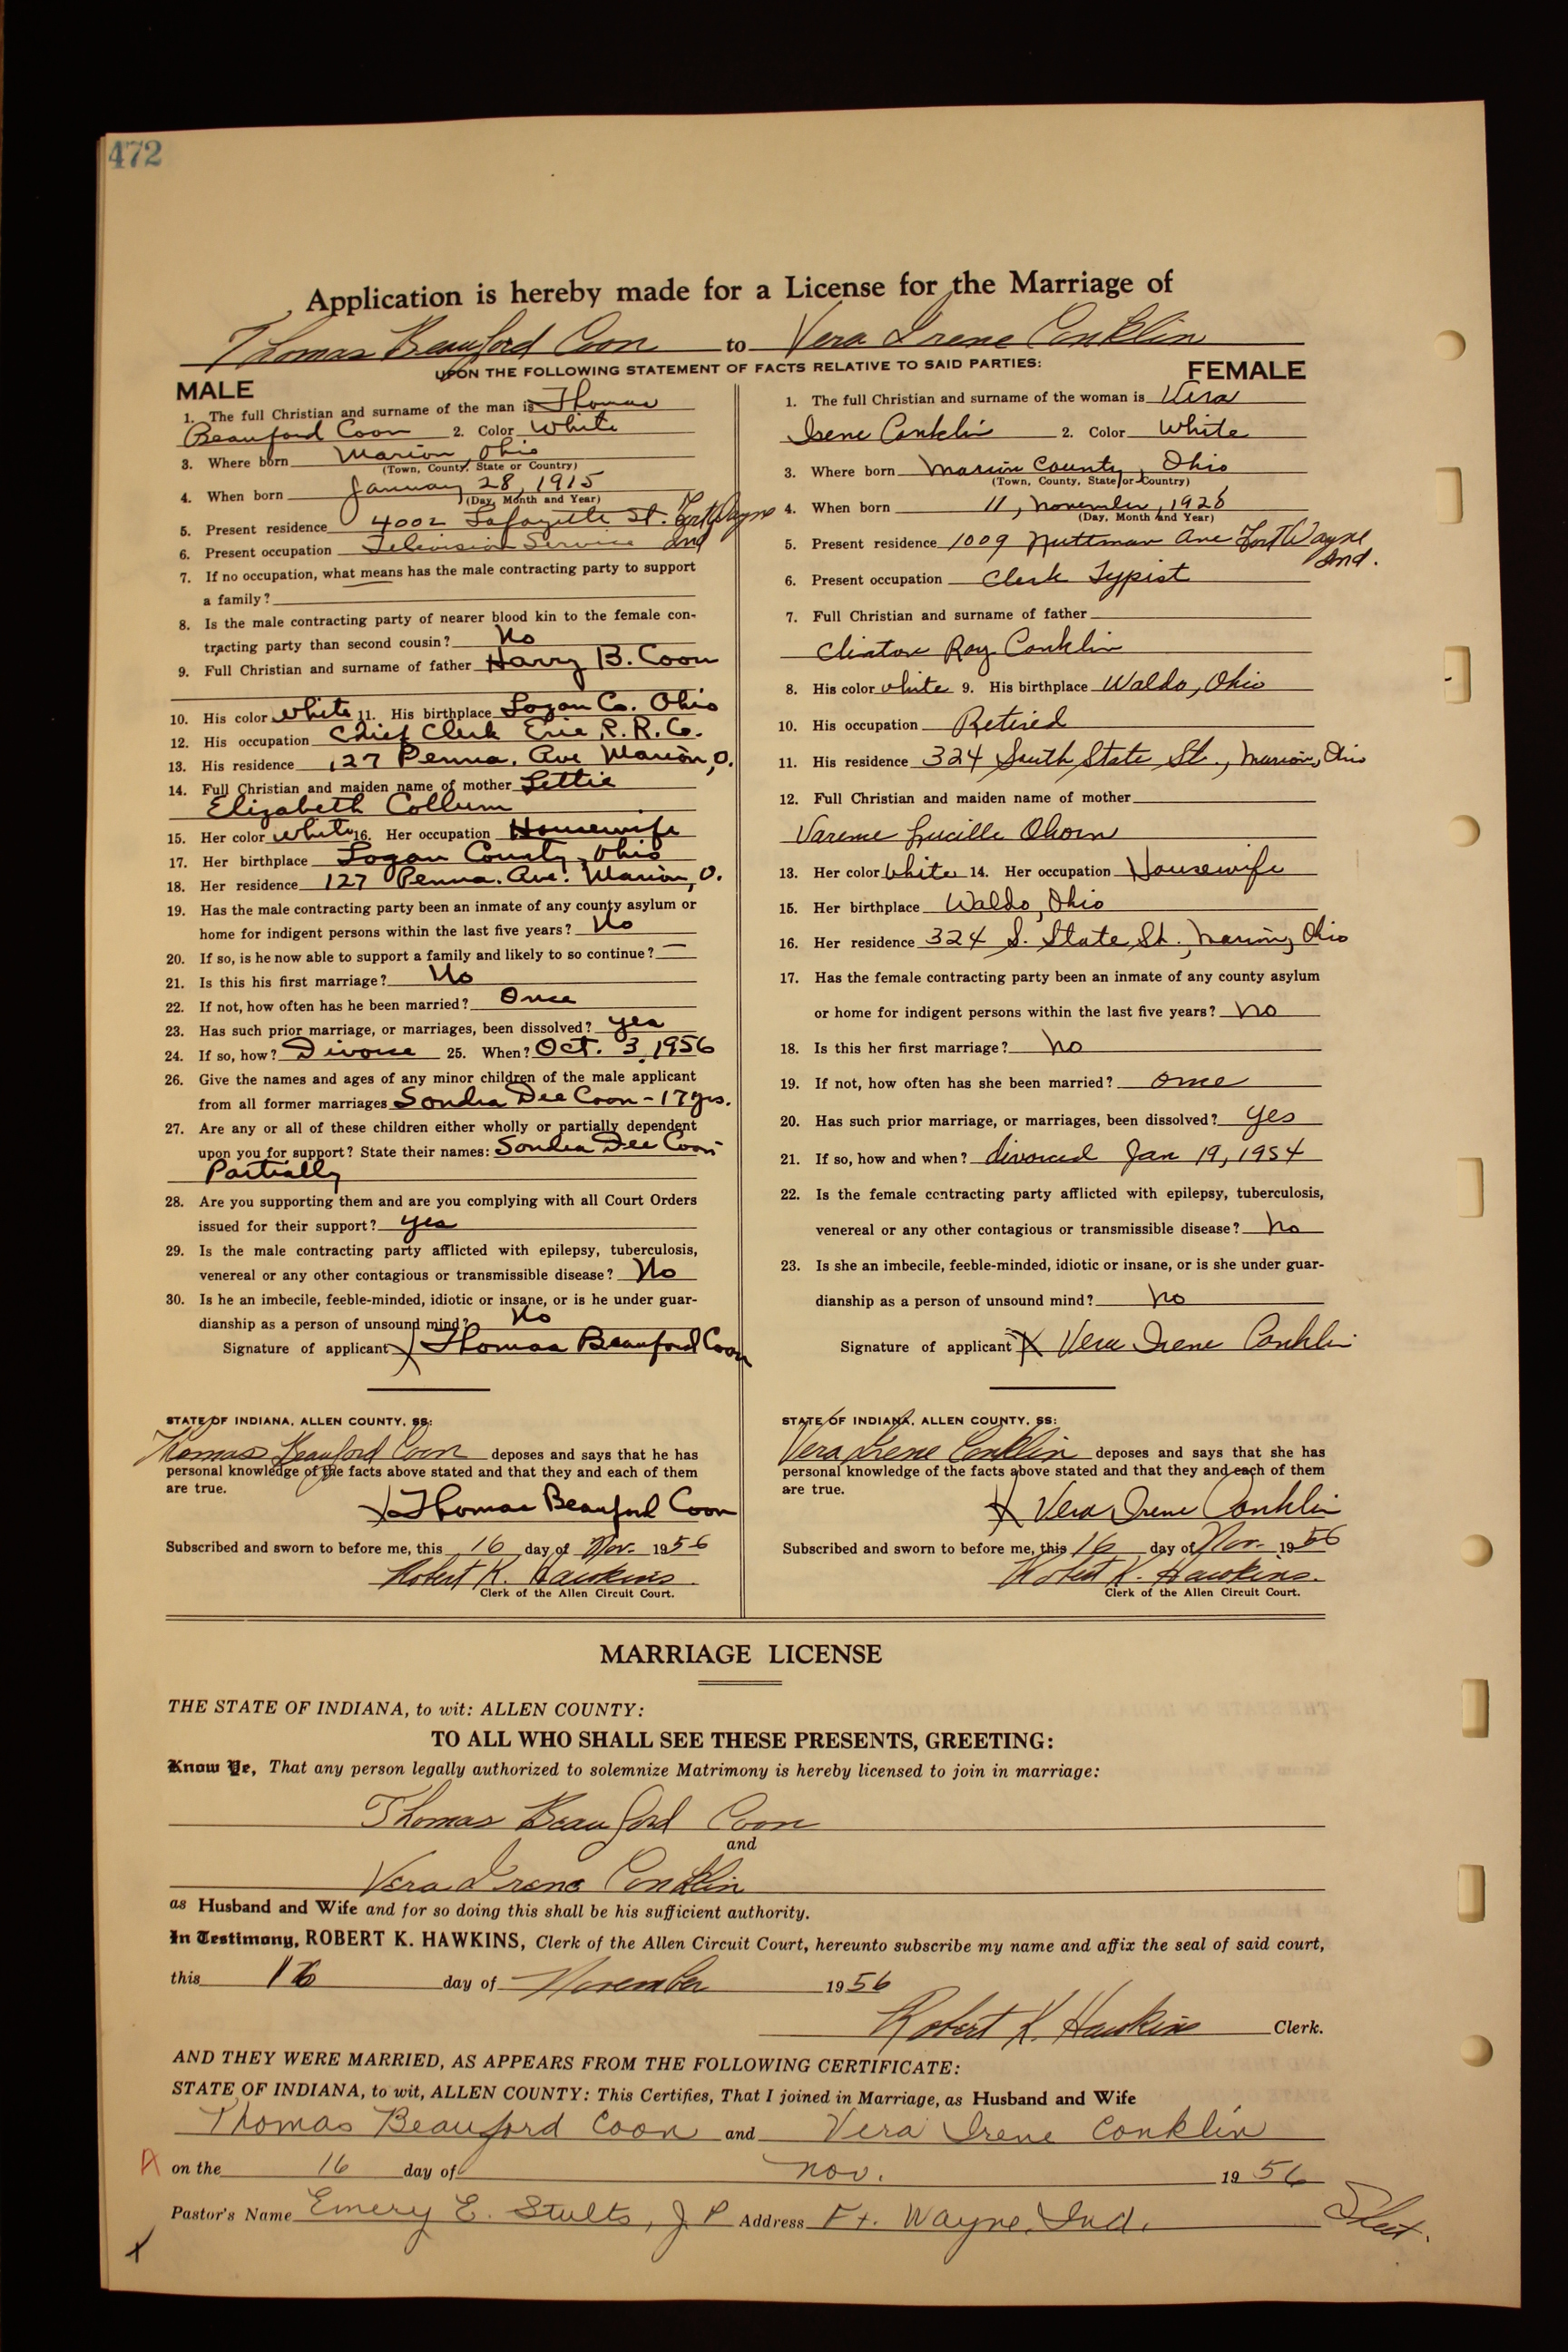 472
Application is hereby made for a License for the Marriage of
Thomas Beauford Coon to Vera Irene Conklin
UPON THE FOLLOWING STATEMENT OF FACTS RELATIVE TO SAID PARTIES:
MALE
1. The full Christian and surname of the man is Thomas
Beauford Coon 2. Color White
3. Where born Marion, Ohio
(Town, County, State or Country)
4. When born January 28, 1915
(Day, Month and Year)
5. Present residence 4002 Lafayette St. Fort Wayne
6. Present occupation Television Service Ind
7. If no occupation, what means has the male contracting party to support
a family?
8. Is the male contracting party of nearer blood kin to the female con-
tracting party than second cousin? No
9. Full Christian and surname of father Harry B. Coon
10. His color White 11. His birthplace Logan Co. Ohio
12. His occupation Chief Clerk Erie R. R. Co.
13. His residence 127 Penna. Ave Marion, O.
14. Full Christian and maiden name of mother Lettie
Elizabeth Collum
15. Her color White 16. Her occupation Housewife
17. Her birthplace Logan County, Ohio
18. Her residence 127 Penna. Ave. Marion, O.
19. Has the male contracting party been an inmate of any county asylum or
home for indigent persons within the last five years? No
20. If so, is he now able to support a family and likely to so continue? —
21. Is this his first marriage? No
22. If not, how often has he been married? Once
23. Has such prior marriage, or marriages, been dissolved? yes
24. If so, how? Divorce 25. When? Oct. 3, 1956
26. Give the names and ages of any minor children of the male applicant
from all former marriages Sondra Dee Coon - 17 yrs.
27. Are any or all of these children either wholly or partially dependent
upon you for support? State their names: Sondra Dee Coon
Partially
28. Are you supporting them and are you complying with all Court Orders
issued for their support? yes
29. Is the male contracting party afflicted with epilepsy, tuberculosis,
venereal or any other contagious or transmissible disease? No
30. Is he an imbecile, feeble-minded, idiotic or insane, or is he under guar-
dianship as a person of unsound mind? No
Signature of applicant X Thomas Beauford Coon
STATE OF INDIANA, ALLEN COUNTY, SS:
Thomas Beauford Coon deposes and says that he has
personal knowledge of the facts above stated and that they and each of them
are true.
X Thomas Beauford Coon
Subscribed and sworn to before me, this 16 day of Nov. 1956
Robert K. Hawkins
Clerk of the Allen Circuit Court.
FEMALE
1. The full Christian and surname of the woman is Vera
Irene Conklin 2. Color White
3. Where born Marion County, Ohio
(Town, County, State or Country)
4. When born 11, November, 1928
(Day, Month and Year)
5. Present residence 1009 Nuttman Ave Fort Wayne
Ind.
6. Present occupation Clerk Typist
7. Full Christian and surname of father
Clinton Ray Conklin
8. His color white 9. His birthplace Waldo, Ohio
10. His occupation Retired
11. His residence 324 South State St., Marion, Ohio
12. Full Christian and maiden name of mother
Lucille
13. Her color White 14. Her occupation Housewife
15. Her birthplace Waldo, Ohio
16. Her residence 324 S. State St., Marion, Ohio
17. Has the female contracting party been an inmate of any county asylum
or home for indigent persons within the last five years? no
18. Is this her first marriage? no
19. If not, how often has she been married? once
20. Has such prior marriage, or marriages, been dissolved? yes
21. If so, how and when? divorced Jan 19, 1954
22. Is the female contracting party afflicted with epilepsy, tuberculosis,
venereal or any other contagious or transmissible disease? no
23. Is she an imbecile, feeble-minded, idiotic or insane, or is she under guar-
dianship as a person of unsound mind? no
Signature of applicant X Vera Irene Conklin
STATE OF INDIANA, ALLEN COUNTY, SS:
Vera Irene Conklin deposes and says that she has
personal knowledge of the facts above stated and that they and each of them
are true.
X Vera Irene Conklin
Subscribed and sworn to before me, this 16 day of Nov. 1956
Robert K. Hawkins.
Clerk of the Allen Circuit Court.
MARRIAGE LICENSE
THE STATE OF INDIANA, to wit: ALLEN COUNTY:
TO ALL WHO SHALL SEE THESE PRESENTS, GREETING:
Know Ye, That any person legally authorized to solemnize Matrimony is hereby licensed to join in marriage:
Thomas Beauford Coon
and
Vera Irene Conklin
as Husband and Wife and for so doing this shall be his sufficient authority.
In Testimony, ROBERT K. HAWKINS, Clerk of the Allen Circuit Court, hereunto subscribe my name and affix the seal of said court,
this 16 day of November 1956
Robert K. Hawkins Clerk.
AND THEY WERE MARRIED, AS APPEARS FROM THE FOLLOWING CERTIFICATE:
STATE OF INDIANA, to wit, ALLEN COUNTY: This Certifies, That I joined in Marriage, as Husband and Wife
Thomas Beauford Coon and Vera Irene Conklin
A on the 16 day of Nov. 1956
Pastor's Name Emery E. Stults, J P Address Ft. Wayne, Ind.
X